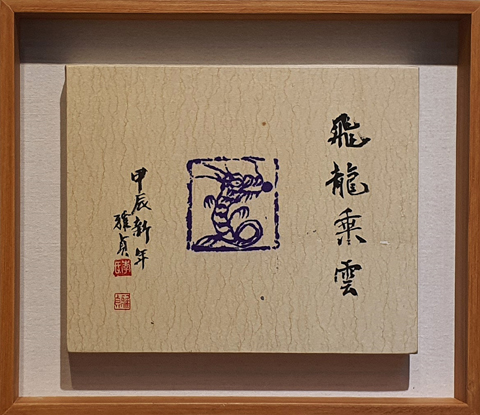 飛龍乘雲
甲辰新年
雅貞